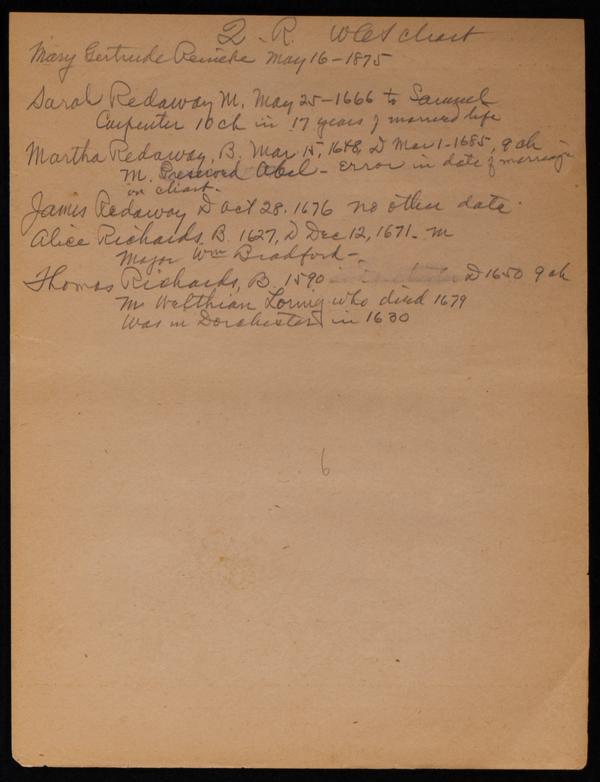 Q. R. WCS chart
Mary Gertrude Reineke May 16-1875
Sarah Redaway M. May 25-1666 to Samuel
Carpenter 10 ch in 17 years of married life
Martha Redaway, B. Mar 15, 1648, D Mar 1-1685, 9 ch
M. Preserved Abel - Error in date of marriage
on chart.
James Redaway D Oct 28. 1676 no other date.
Alice Richards. B. 1627, D Dec 12, 1671. m
Major Wm Bradford-.
Thomas Richards, B. 1590 D 1650 9 ch
M. Welthian Loring who died 1679
Was in Dorchester in 1630
6